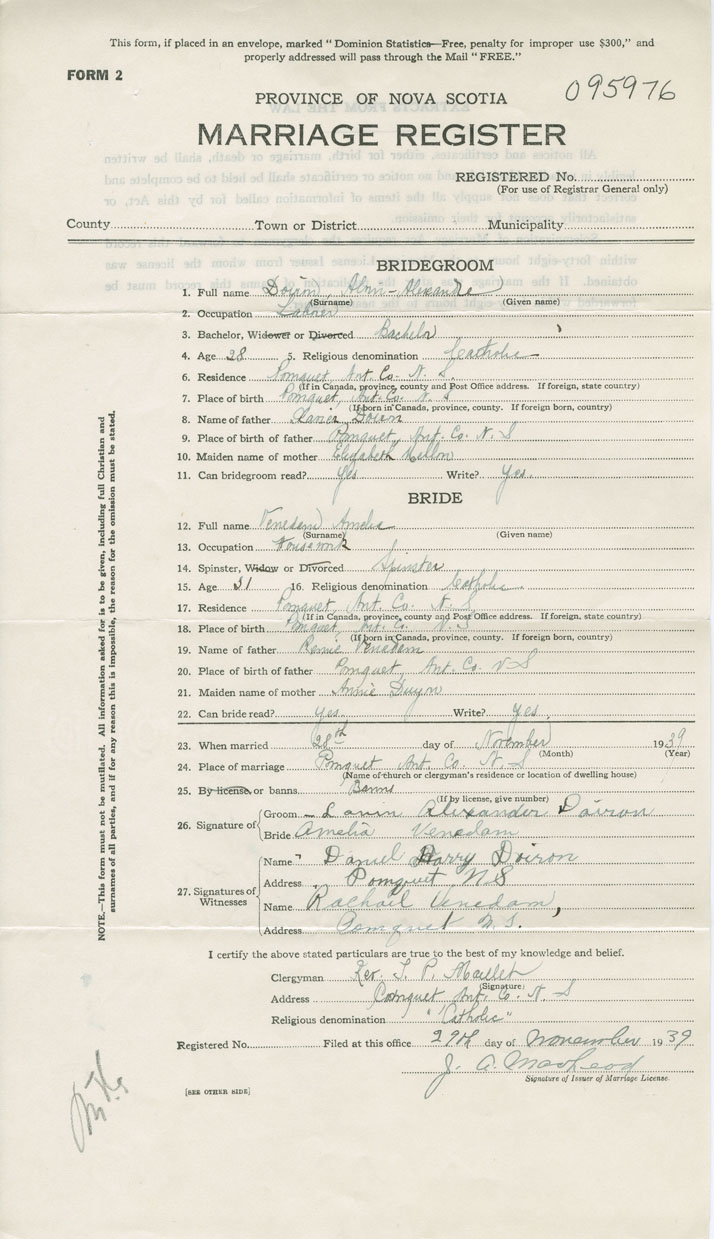 This form, if placed in an envelope, marked "Dominion Statistics—Free, penalty for improper use $300," and
properly addressed will pass through the Mail "FREE."
FORM 2
095976
PROVINCE OF NOVA SCOTIA
MARRIAGE REGISTER
REGISTERED No.
(For use of Registrar General only)
County Town or District Municipality
BRIDEGROOM
1. Full name Doiron, Alexandre
(Surname) (Given name)
2. Occupation Labrer
3. Bachelor, Widower or Divorced Bachelor
4. Age 28 5. Religious denomination Catholic
6. Residence Pomquet, Ant. Co. N. S
(If in Canada, province, county and Post Office address. If foreign, state country)
7. Place of birth Pomquet, Ant. Co. N. S
(If born in Canada, province, county. If foreign born, country)
8. Name of father Doiron
9. Place of birth of father Pomquet, Ant. Co. N. S
10. Maiden name of mother Elizabeth
11. Can bridegroom read? Yes Write? Yes.
BRIDE
12. Full name Venedam Amelia
(Surname) (Given name)
13. Occupation Housework
14. Spinster, Widow or Divorced Spinster
15. Age 31 16. Religious denomination Catholic
17. Residence Pomquet, Ant. Co. N. S
(If in Canada, province, county and Post Office address. If foreign, state country)
18. Place of birth Pomquet, Ant. Co. N. S
(If born in Canada, province, county. If foreign born, country)
19. Name of father Remie Venedam
20. Place of birth of father Pomquet, Ant. Co. N S
21. Maiden name of mother Annie
22. Can bride read? Yes Write? Yes.
23. When married 28th day of November 1939
(Month) (Year)
24. Place of marriage Pomquet Ant. Co. N. S
(Name of church or clergyman's residence or location of dwelling house)
25. By license, or banns Banns
(If by license, give number)
26. Signature of Groom Alexander Doiron
Bride Amelia Venedam
27. Signatures of Witnesses
Name Daniel Harry Doiron
Address Pomquet N S
Name Rachael Venedam
Address Pomquet N. S.
I certify the above stated particulars are true to the best of my knowledge and belief.
Clergyman Rev. Maillet
(Signature)
Address Pomquet Ant. Co. N. S
Religious denomination "Catholic"
Registered No. Filed at this office 29th day of November 1939
J. A. MacLeod
Signature of Issuer of Marriage License.
[SEE OTHER SIDE]
NOTE.—This form must not be mutilated. All information asked for is to be given, including full Christian and
surnames of all parties, and if for any reason this is impossible, the reason for the omission must be stated.